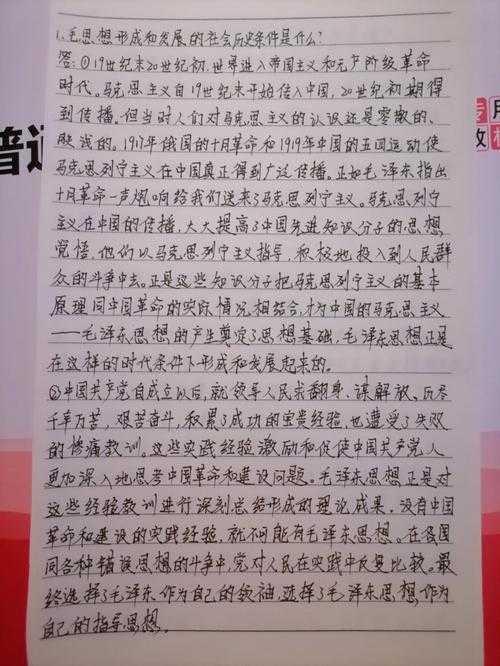 1.毛思想形成和发展的社会历史条件是什么?
答:①19世纪末20世纪初,世界进入帝国主义和无产阶级革命
时代。马克思主义自19世纪末开始传入中国,20世纪初期得
到传播。但当时人们对马克思主义的认识还是零散的、
肤浅的。1917年俄国的十月革命和1919年中国的五四运动使
马克思列宁主义在中国真正得到广泛传播。正如毛泽东指出
十月革命一声炮响给我们送来了马克思列宁主义。马克思列宁
主义在中国的传播,大大提高了中国先进知识分子的思想
觉悟,他们以马克思列宁主义指导,积极地投入到人民群
众的斗争中去。正是这些知识分子把马克思列宁主义的基本
原理同中国革命的实际情况相结合,才为中国的马克思主义
——毛泽东思想的产生奠定了思想基础,毛泽东思想正是
在这样的时代条件下形成和发展起来的。
②中国共产党自成立以后,就领导人民求翻身、谋解放、历尽
千辛万苦,艰苦奋斗,积累了成功的宝贵经验,也遭受了失败
的惨痛教训。这些实践经验激励和促使中国共产党人
更加深入地思考中国革命和建设问题。毛泽东思想正是对
这些经验教训进行深刻总结形成的理论成果。没有中国
革命和建设的实践经验,就不可能有毛泽东思想。在我国
同各种错误思想的斗争中,党对人民在实践中反复比较。最
终选择了毛泽东作为自己的领袖,选择了毛泽东思想作为
自己的指导思想。
普通
专
月
教